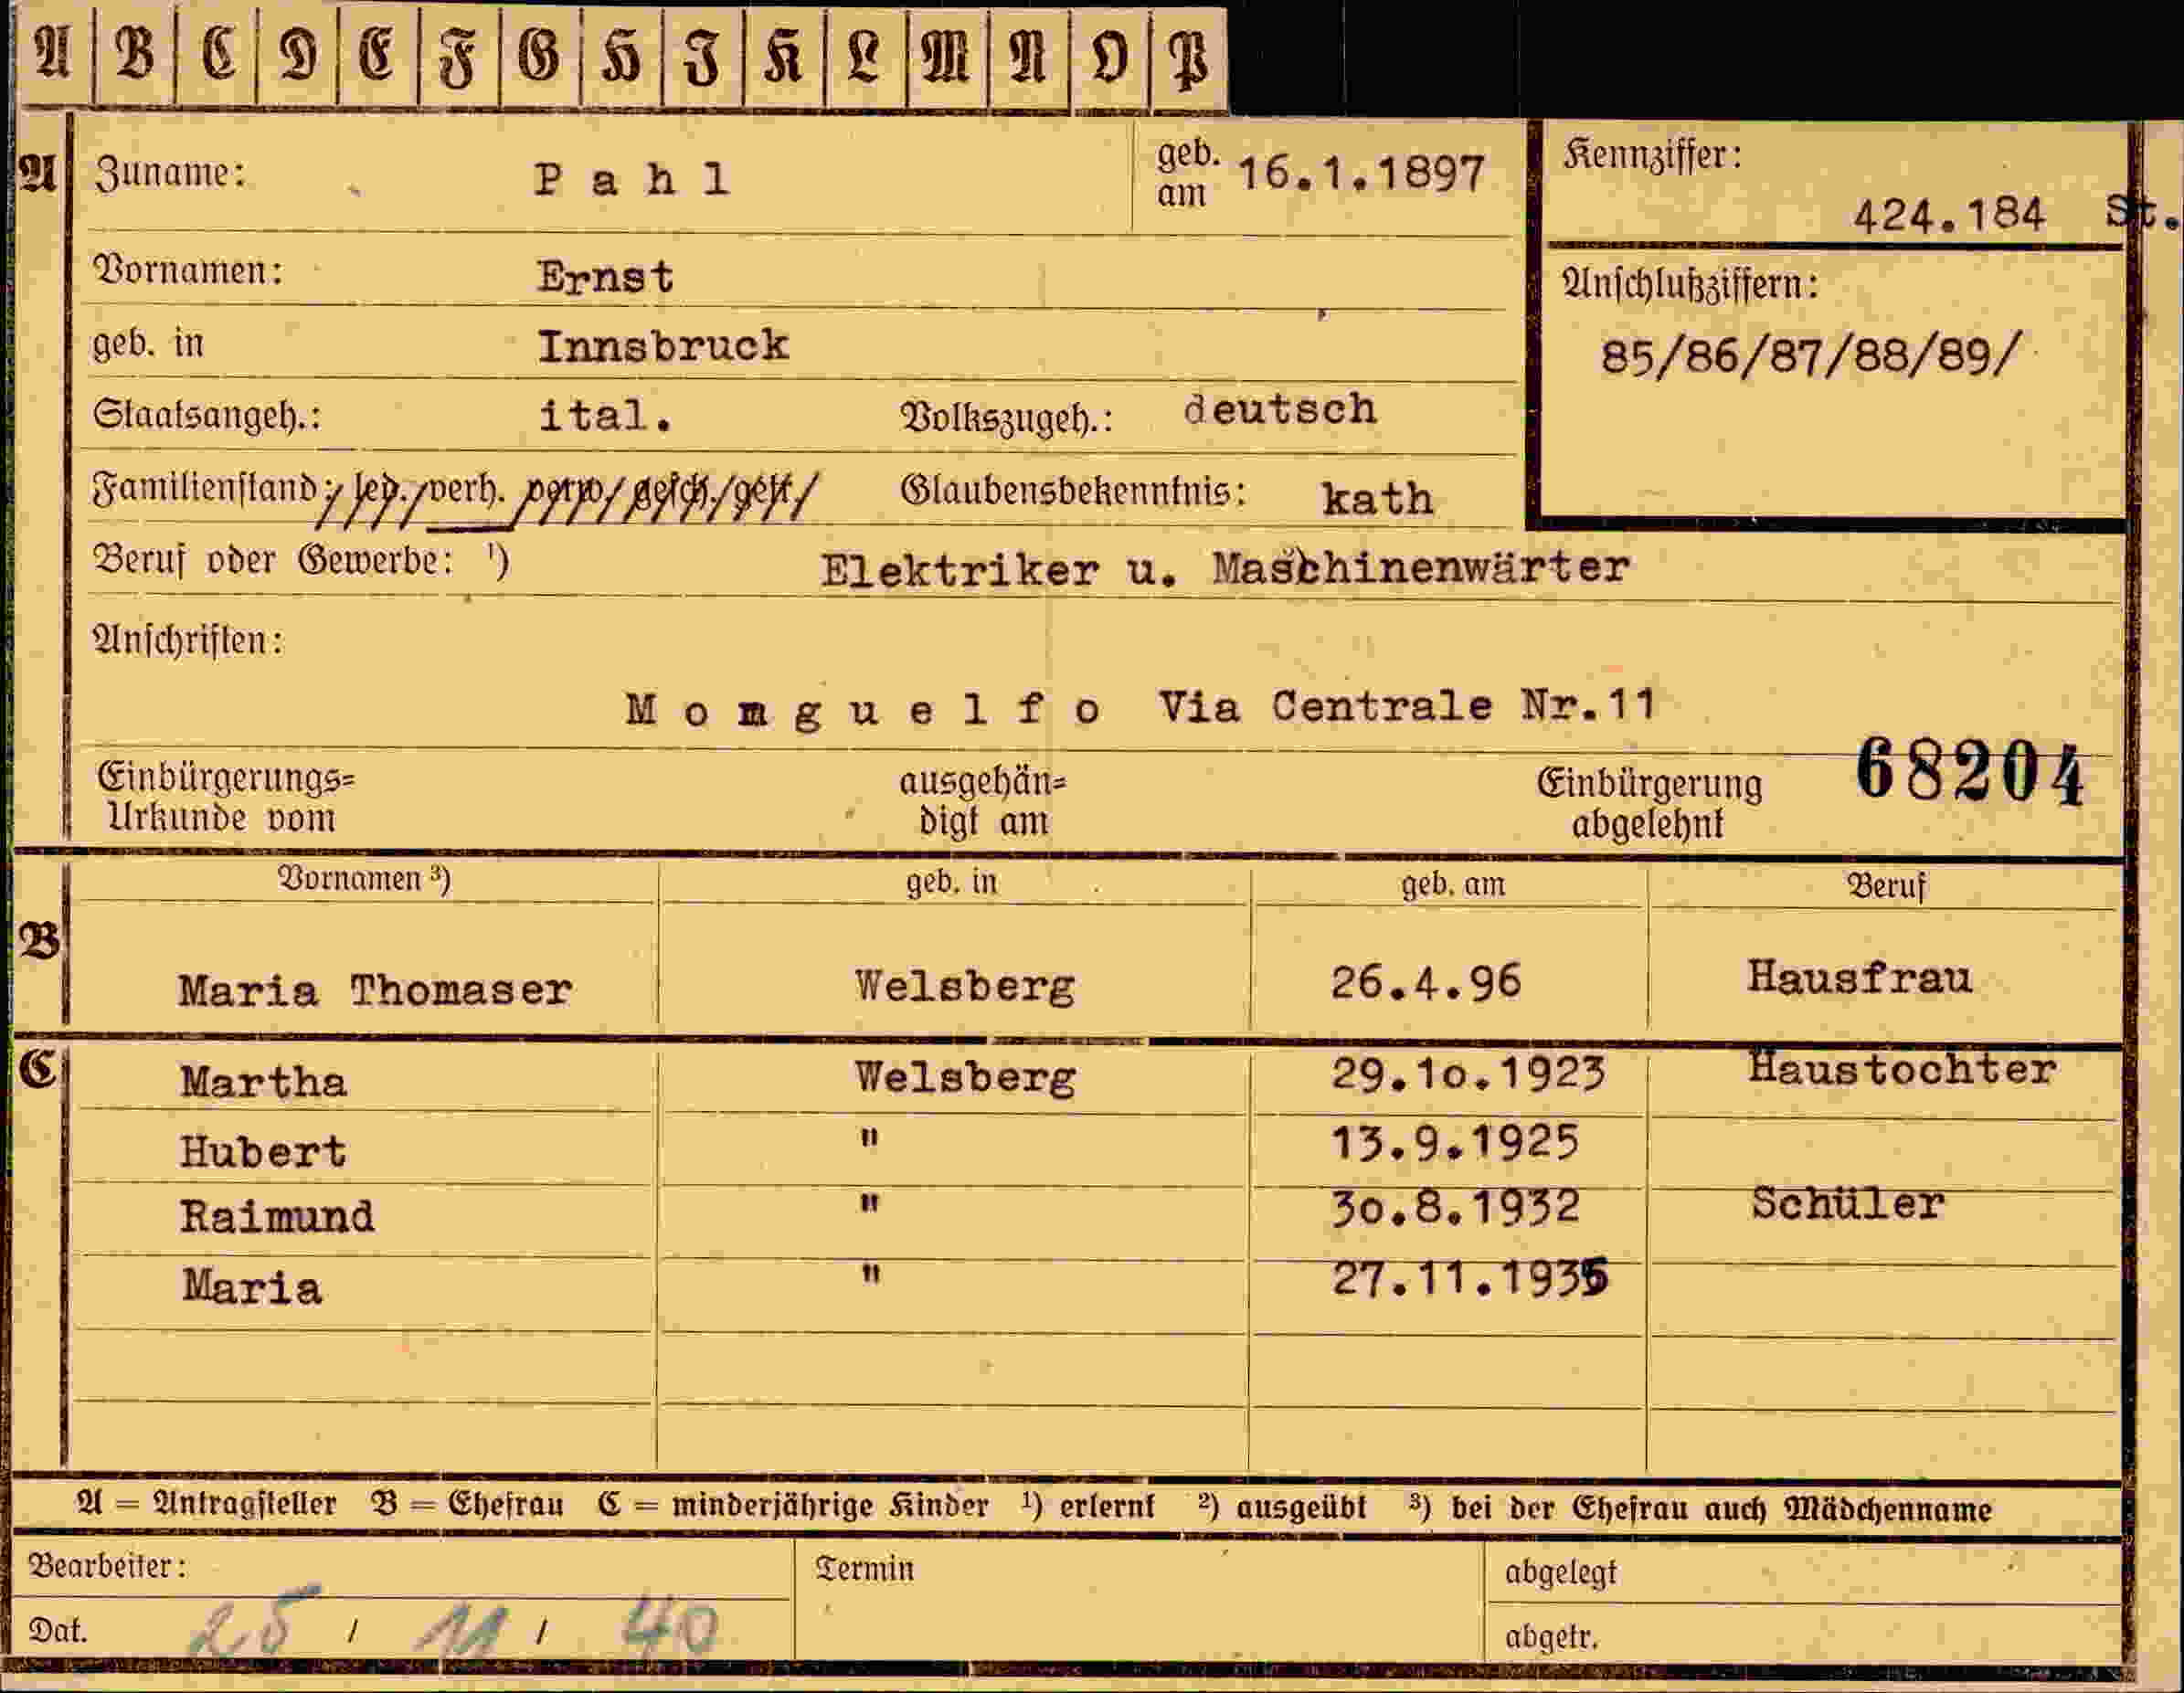 A B C D E F G H I K L M N O P
A Zuname: P a h l geb. am 16.1.1897 Kennziffer: 424.184 St.
Vornamen: Ernst Anschlußziffern:
geb. in Innsbruck 85/86/87/88/89/
Staatsangeh.: ital. Volkszugeh.: deutsch
Familienstand: led. verh. verw. gesch. getr. Glaubensbekenntnis: kath
Beruf oder Gewerbe: ¹) Elektriker u. Maschinenwärter
Anschriften:
M o n g u e l f o Via Centrale Nr.11
Einbürgerungs= ausgehän= Einbürgerung 68204
Urkunde vom digt am abgelehnt
Vornamen ³) geb. in geb. am Beruf
B
Maria Thomaser Welsberg 26.4.96 Hausfrau
C Martha Welsberg 29.10.1923 Haustochter
Hubert " 13.9.1925
Raimund " 30.8.1932 Schüler
Maria " 27.11.1935
A = Antragsteller B = Ehefrau C = minderjährige Kinder ¹) erlernt ²) ausgeübt ³) bei der Ehefrau auch Mädchenname
Bearbeiter: Termin abgelegt
Dat. 25 / 11 / 40 abgetr.